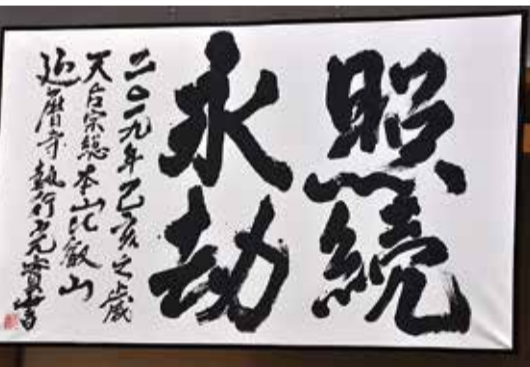 照続
永劫
二〇一九年己亥之歳
天台宗総本山比叡山
延暦寺執行
書